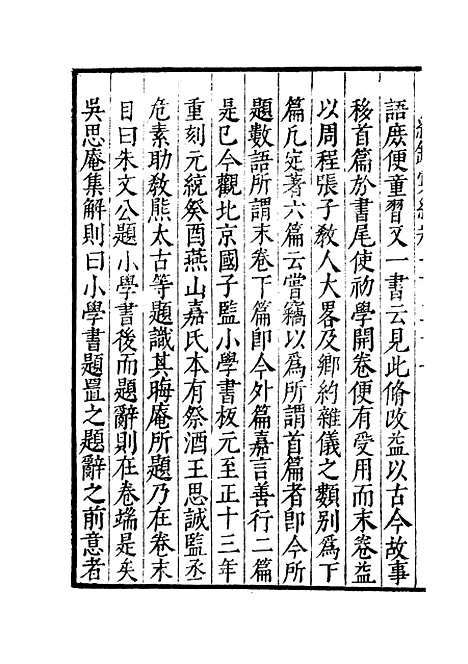 語庶便童習又一書云見此脩改益以古今故事
移首篇於書尾使初學開卷便有受用而末卷益
以周程張子教人大畧及鄉約雜儀之類别為下
篇凡定著六篇云嘗竊以為所謂首篇者即今所
題數語所謂末卷下篇即今外篇嘉言善行二篇
是已今觀北京國子監小學書板元至正十三年
重刻元統癸酉燕山嘉氏本有祭酒王思誠監丞
危素助教熊太古等題識其晦庵所題乃在卷末
目曰朱文公題小學書後而題辭則在卷端是矣
吳思庵集解則曰小學書題置之題辭之前意者